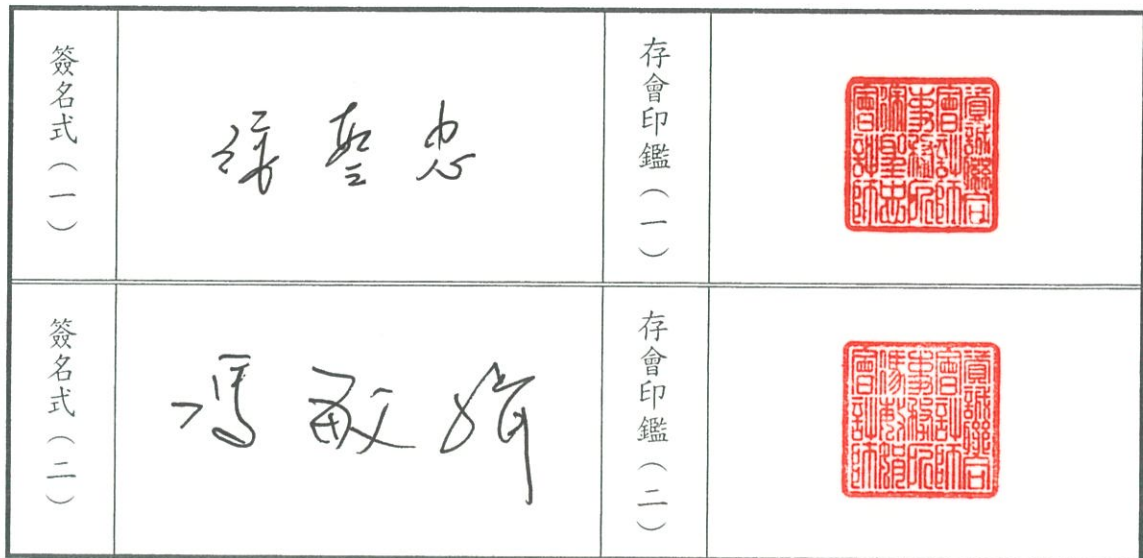 簽名式（一）
徐聖忠
存會印鑑（一）
資誠聯合
會計師
事務所
徐聖忠
會計師
簽名式（二）
馮敏娟
存會印鑑（二）
資誠聯合
會計師
事務所
馮敏娟
會計師